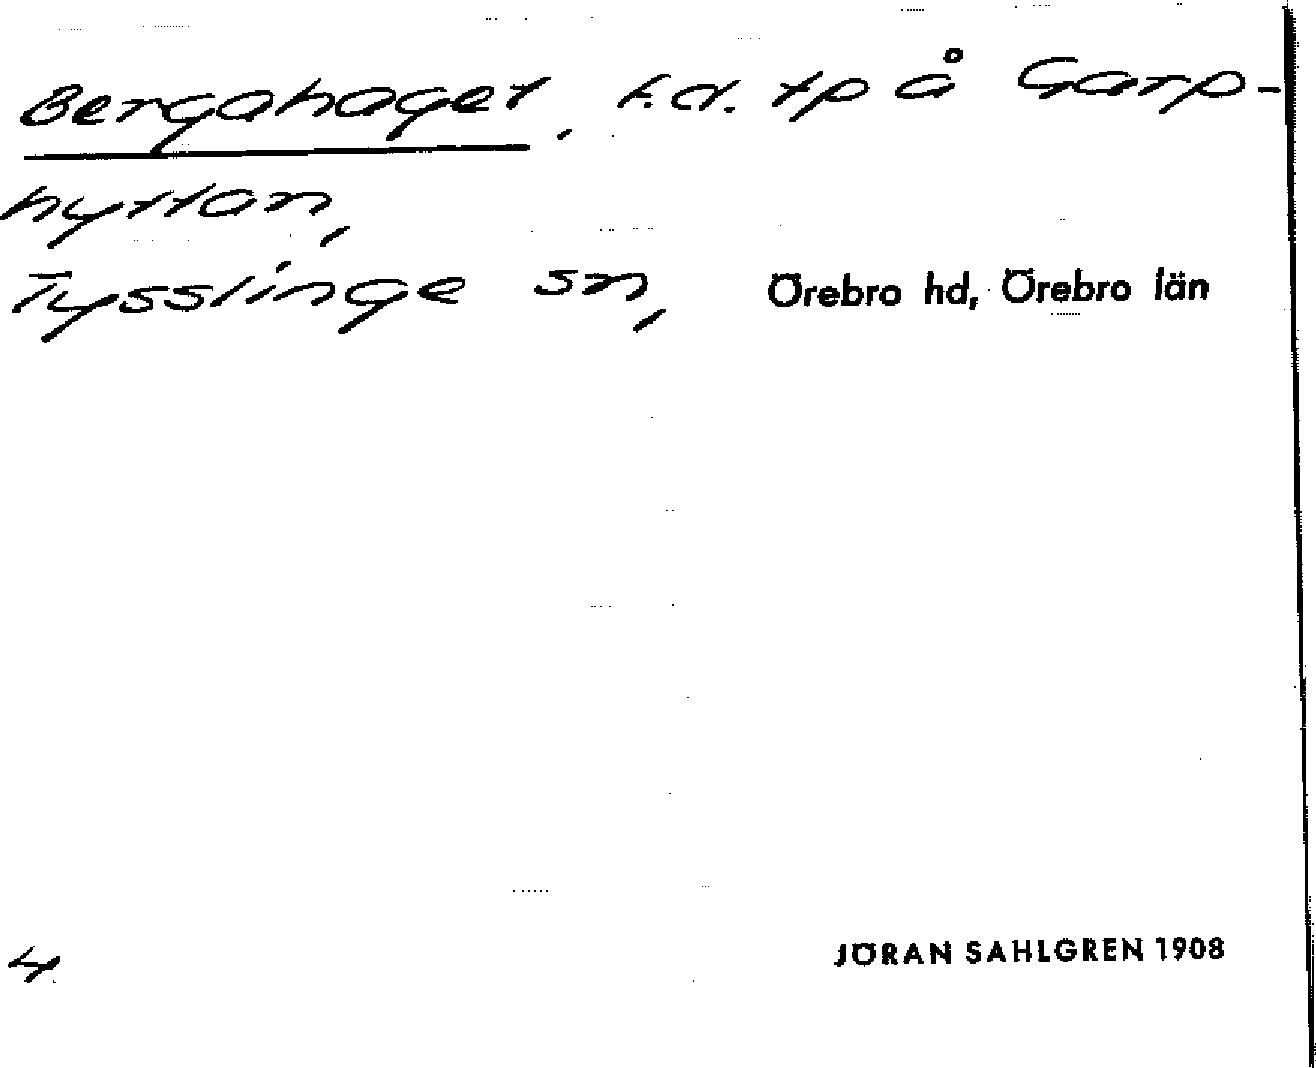 Bergahaget, f.d. tp å Garp-
hyttan,
Tysslinge sn, Örebro hd, Örebro län
4
JÖRAN SAHLGREN 1908